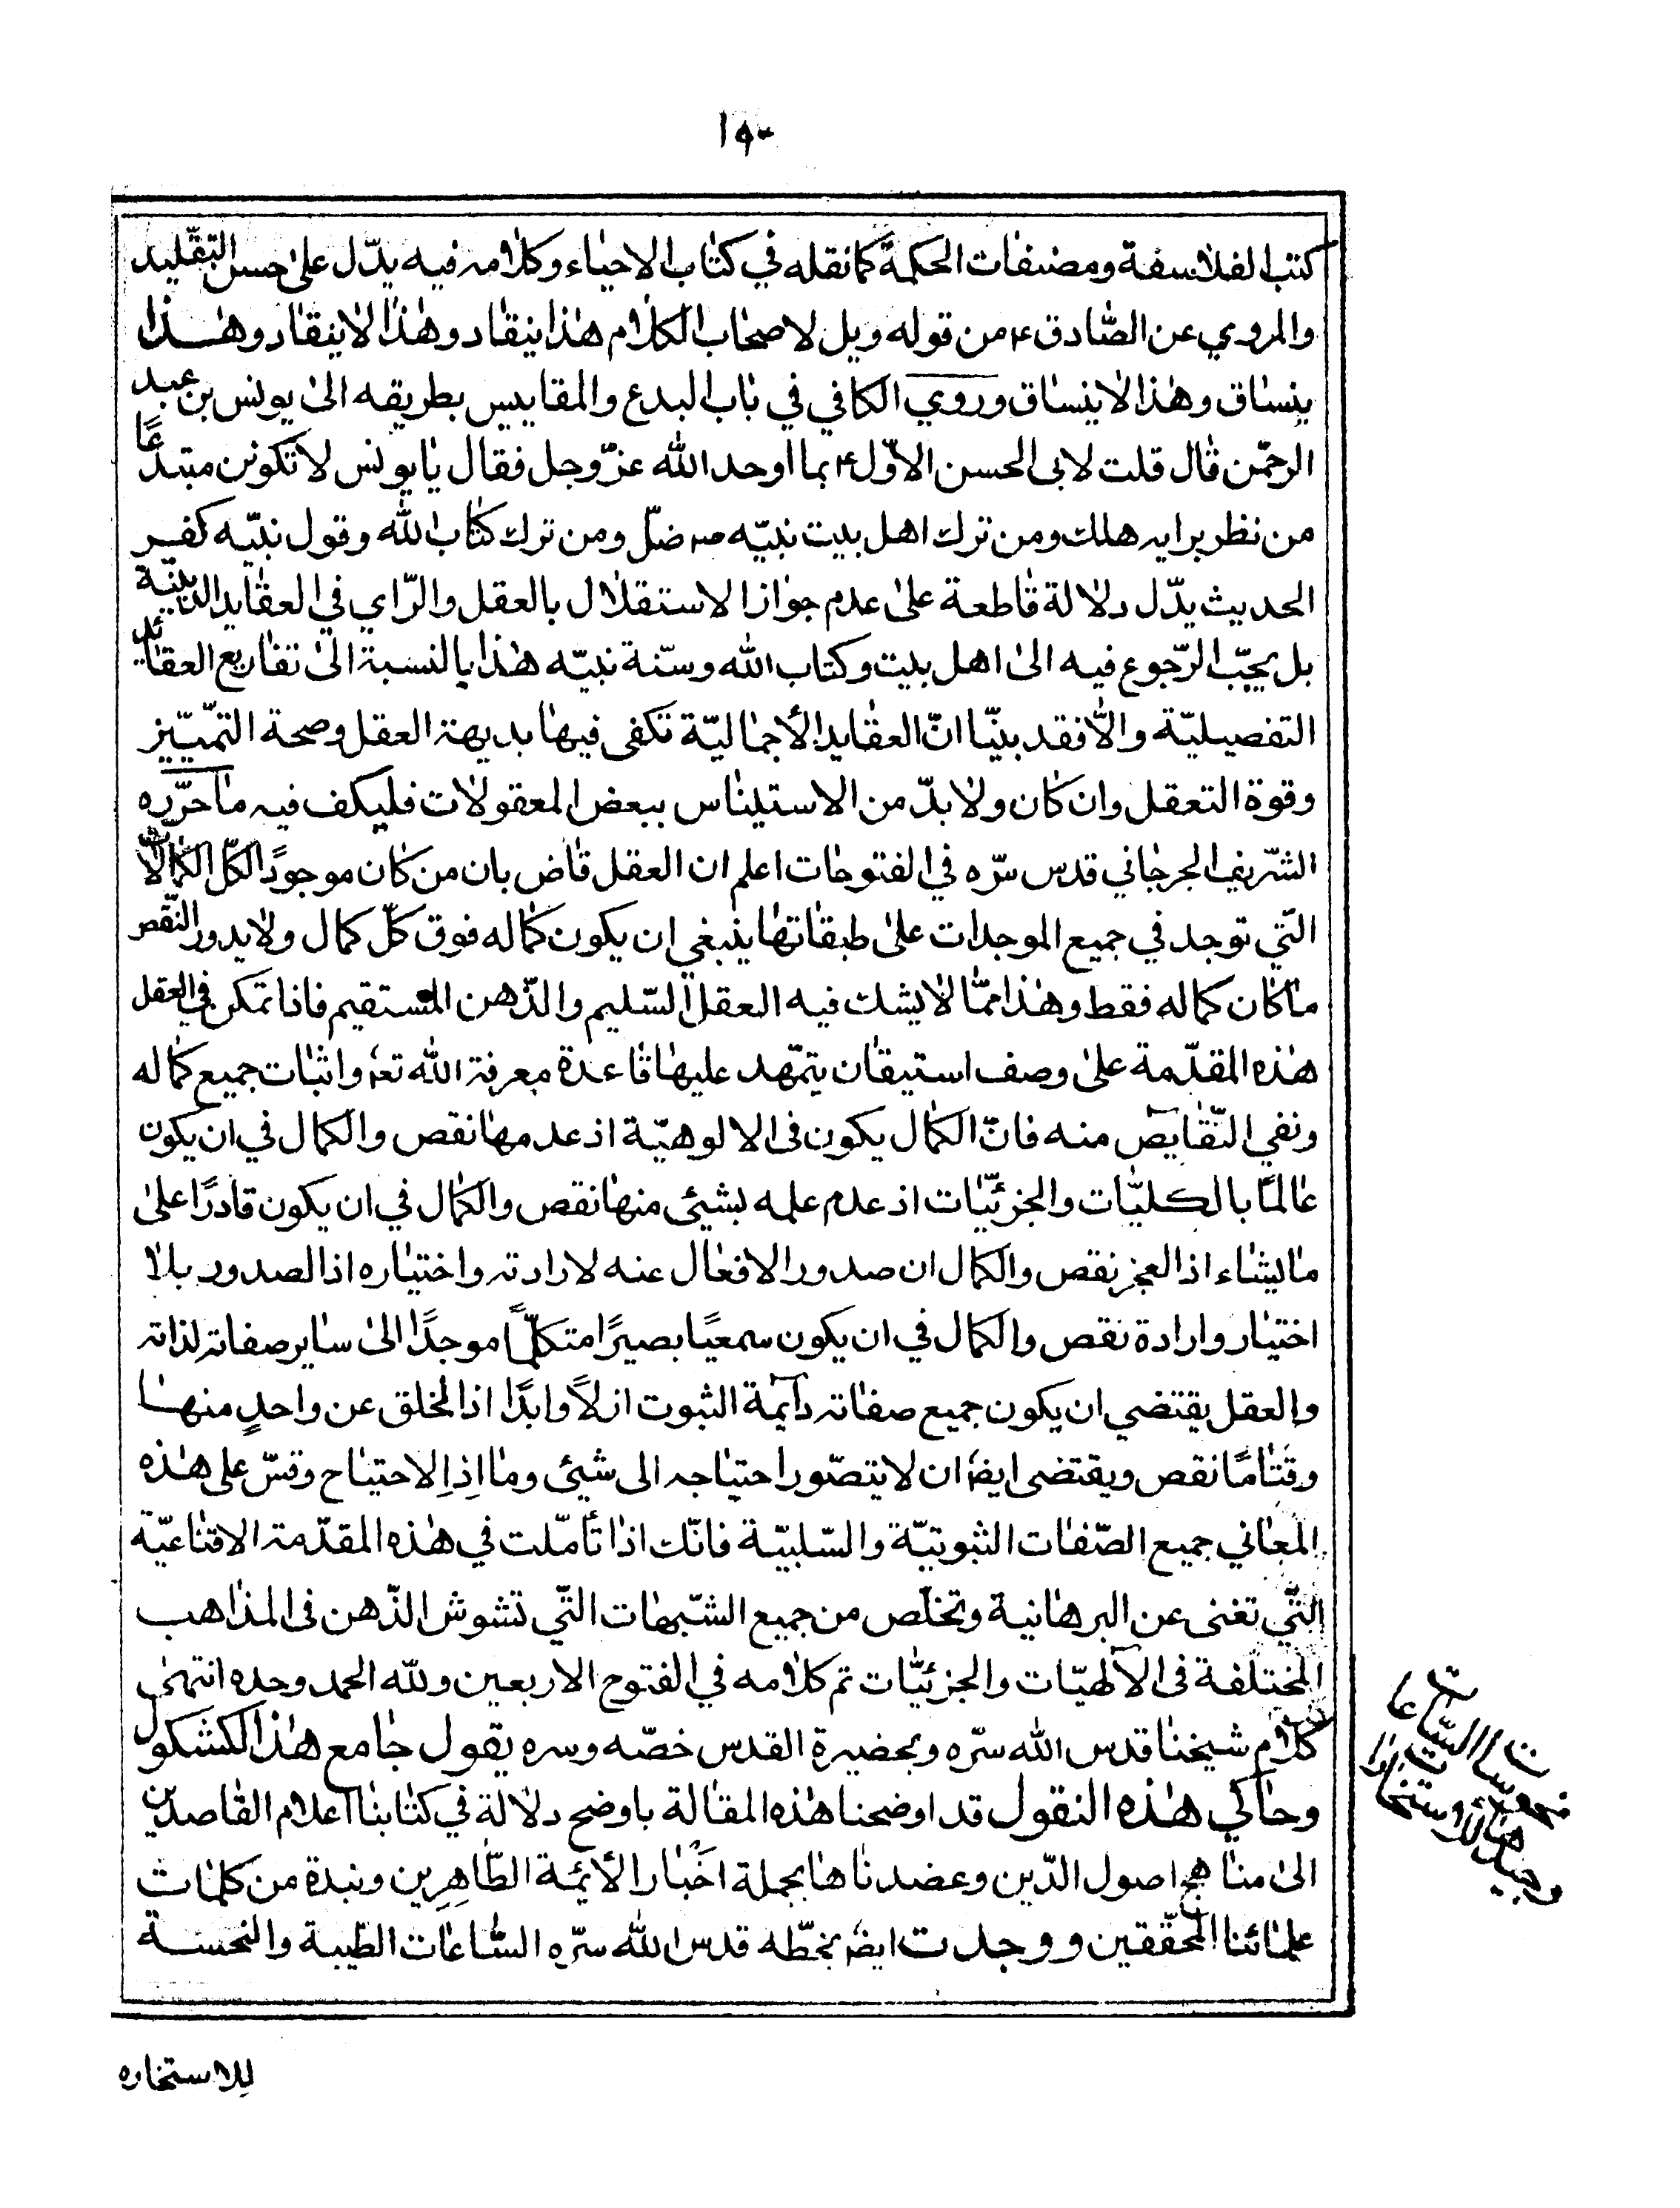 ١٥٠
كتب الفلاسفة ومصنفات الحكمة كما نقله في كتاب الاحياء وكلامه فيه يدّل على حسن التقليد
والمروي عن الصّادق ع من قوله ويل لاصحاب الكلام هذا ينقاد وهذا لا ينقاد وهذا
ينساق وهذا لا ينساق وروي الكافي في باب البدع والمقاييس بطريقه الى يونس بن عبد
الرحمن قال قلت لابى الحسن الاوّل ع بما اوحد الله عزّوجل فقال يا يونس لا تكونن مبتدعًا
من نظر برايه هلك ومن ترك اهل بيت نبيّه ص ضلّ ومن ترك كتاب الله وقول نبيّه كفر
الحديث يدّل دلالة قاطعة على عدم جواز الاستقلال بالعقل والرّاي في العقايد الدينيّة
بل يجبّ الرّجوع فيه الى اهل بيت وكتاب الله وسنّة نبيّه هذا بالنسبة الى تفاريع العقائد
التفصيليّة والّا فقد بينّا انّ العقايد الأجماليّة تكفى فيها بديهة العقل وصحة التمّييز
وقوة التعقل وان كان ولا بدّ من الاستيناس ببعض المعقولات فليكف فيه ما حرّره
الشّريف الجرجاني قدس سّره في الفتوحات اعلم ان العقل قاض بان من كان موجودًا لكلّ الكمالات
التّي توجد في جميع الموجدات على طبقاتها ينبغي ان يكون كماله فوق كلّ كمال ولا يدور النّقص
ما كان كماله فقط وهذا ممّا لا يشك فيه العقل السّليم والذّهن المستقيم فاذا تمكن في العقل
هذه المقدّمة على وصف استيقان يتمّهد عليها قاعدة معرفة الله تعه واثبات جميع كماله
ونفي النّقايص منه فانّ الكمال يكون فى الالوهيّة اذ عدمها نقص والكمال في ان يكون
عالمًا بالكليّات والجزئيّات اذ عدم علمه بشيئى منها نقص والكمال في ان يكون قادرًا على
ما يشاء اذ العجز نقص والكمال ان صدور الافعال عنه لارادته واختياره اذ الصدور بلا
اختيار وارادة نقص والكمال في ان يكون سمعيًا بصيرًا متكلّمًا موجدًا الى ساير صفاته لذاته
والعقل يقتضي ان يكون جميع صفاته دآيمة الثبوت ازلًا وابدًا اذ الخلق عن واحدٍ منها
وقتًا مّا نقص ويقتضى ايضه ان لا يتصّور احتياجه الى شيئى وما اذِا الاحتياج وقسّ على هذه
المعاني جميع الصّفات الثبوتيّة والسّلبيّة فانّك اذا تأمّلت في هذه المقدّمة الاقناعيّة
التّي تغنى عن البرهانية وتخلّص من جميع الشبّهات التّي تشوش الذّهن فى المذاهب
المختلفة فى الآلهيّات والجزئيّات تم كلامه في الفتوح الاربعين ولله الحمد وحده انتهى
كلام شيخنا قدس الله سرّه وبحضيرة القدس خصّه وسره يقول جامع هذا الكشكول
وحاكي هذه النقول قد اوضحنا هذه المقالة باوضح دلالة في كتابنا اعلام القاصدين
الى مناهج اصول الدّين وعضدناها بجملة اخبار الأئيمّة الطّاهِرِين ونبدة من كلمات
علمائنا المحقّقين ووجدت ايضه بخطّه قدس الله سرّه السّاعات الطّيبة والنحسة
للاستخاره